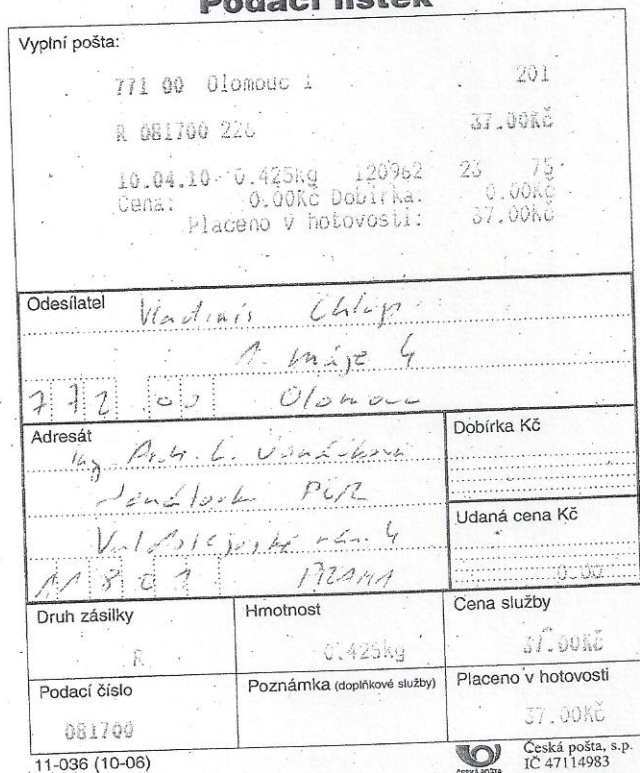 Podací lístek
Vyplní pošta:
771 00 Olomouc 1 201
R 081700 226 37.00Kč
10.04.10 0.425kg 120962 23 75
Cena: 0.00Kč Dobírka: 0.00Kč
Placeno v hotovosti: 37.00Kč
Odesílatel Vladimír Chlup
1. máje 4
772 00 Olomouc
Adresát
Ing. Arch. L.
PČR
nám. 4
118 01 PRAHA
Dobírka Kč
Udaná cena Kč
0.00
Druh zásilky
R
Hmotnost
0.425kg
Cena služby
37.00Kč
Podací číslo
081700
Poznámka (doplňkové služby)
Placeno v hotovosti
37.00Kč
11-036 (10-06)
ČESKÁ POŠTA
Česká pošta, s.p.
IČ 47114983